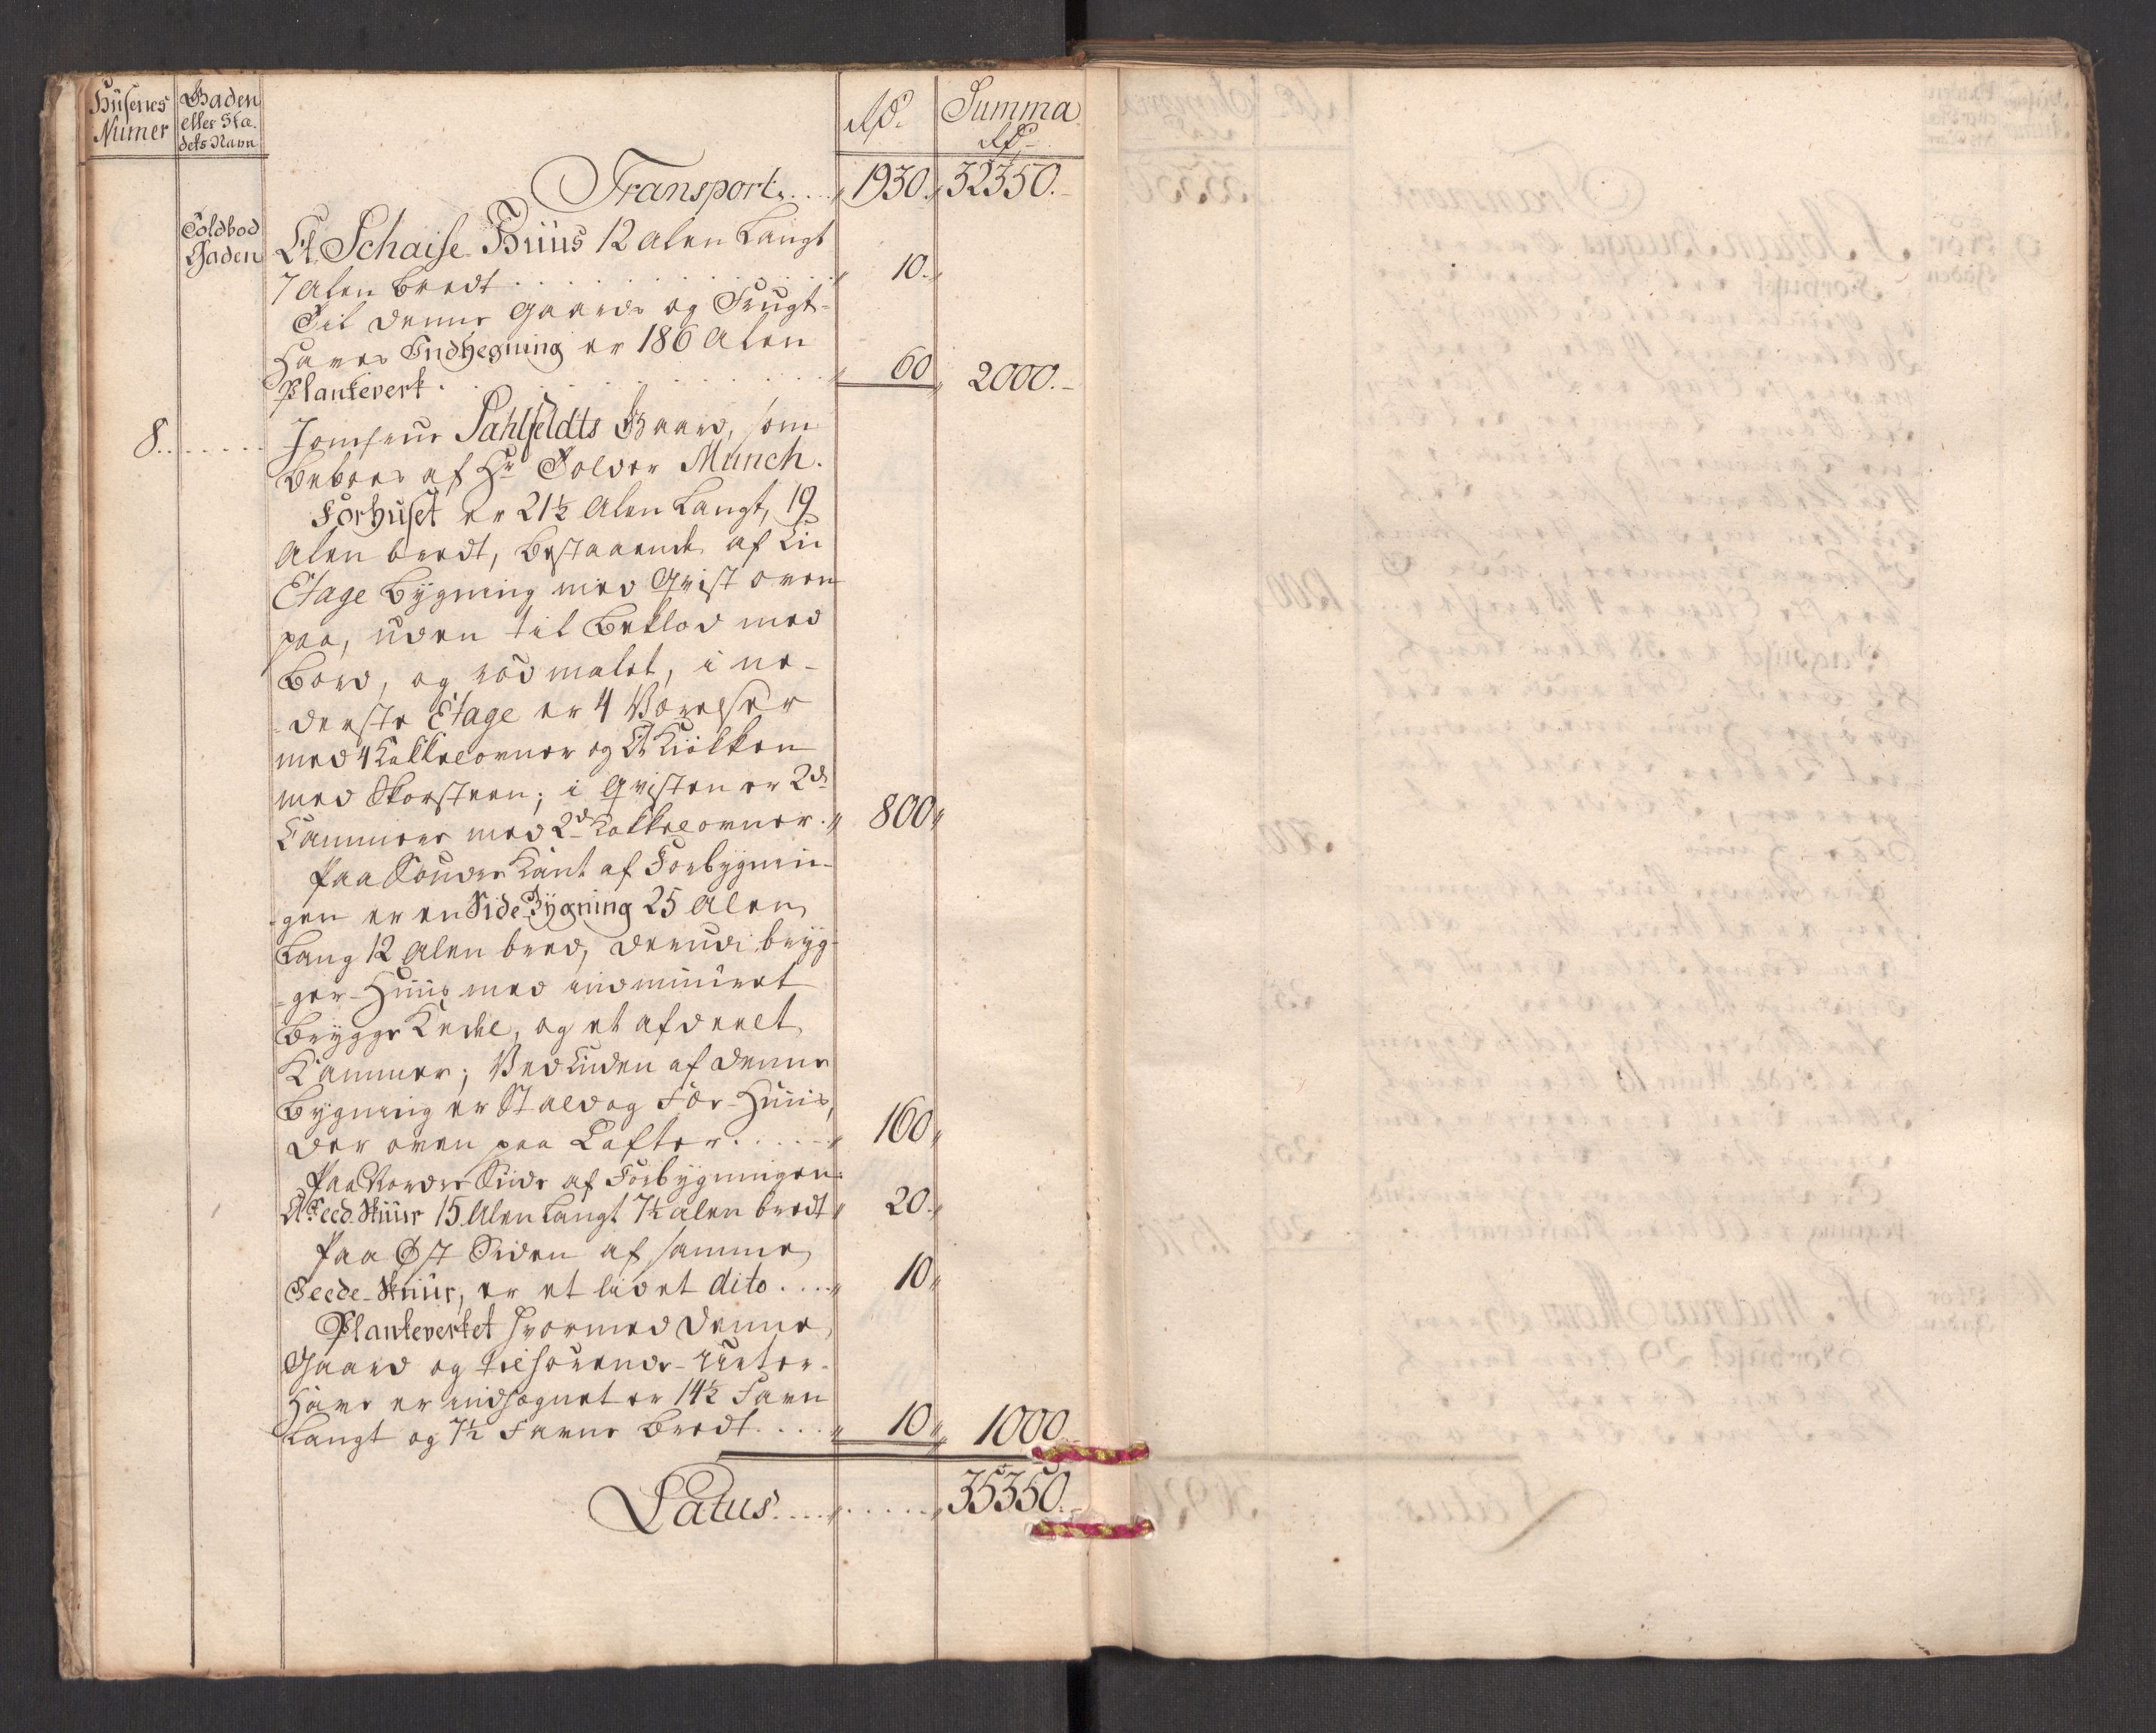 Husenes Numer
Gaden eller Stædets Navn
Rd.
Summa Rd.
Transport. . . . 1930. 32350.-
Toldbod Gaden
Et Schaise Huus 12 Alen Langt
7 Alen Bredt . . . . . . 10.
Til denne Gaards og Frugt-
Haves Indhegning er 186 Alen
Plankeverk . . . . . . 60 2000.-
8. . . . . . Jomfrue Sahlfeldts Gaard, som
beboes af Hr Tolder Munch.
Forhuset er 21½ Alen Langt, 19
Alen bredt, bestaaende af Een
Etage Bygning med Qvist oven
paa, uden til beklæd med
Bord, og rød malet, i ne-
derste Etage er 4 Værelser
med 4 Kakkelovner og Et Kiökken
med Skorsteen; i Qvisten er 2de
Cammers med 2de Kakkelovner. 800
Paa Sønder Kant af Forbygnin-
gen er en Side Bygning 25 Alen
Lang 12 Alen bred, derudi bryg-
ger-Huus med indmuuret
Brygge Kedel, og et afdeelt
Kammer; Ved Enden af denne
Bygning er Stald og Fær-Huus,
der oven paa Lofter. . . . . 160
Paa Norder Siide af Forbygningen:
Et Feed. Skuur 15 Alen Langt 7½ Alen bredt 20.
Paa Øst Siden af samme
Feede-Skuur, er et lidet dito . . . . 10
Plankeverket hvormed denne
Gaard og tilhørende Urter-
Have er indhægnet er 14½ Favn
Langt og 7½ Favne Bredt. . . . 10 1000.
Latus. . . . . . . . . 35350.-